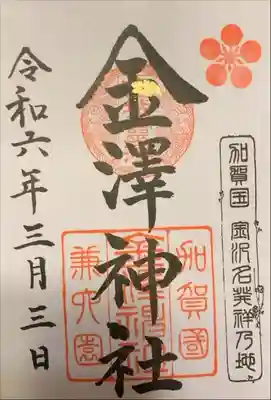 加賀国 金沢名発祥乃地
金澤神社
加賀國
兼六園
令和六年三月三日